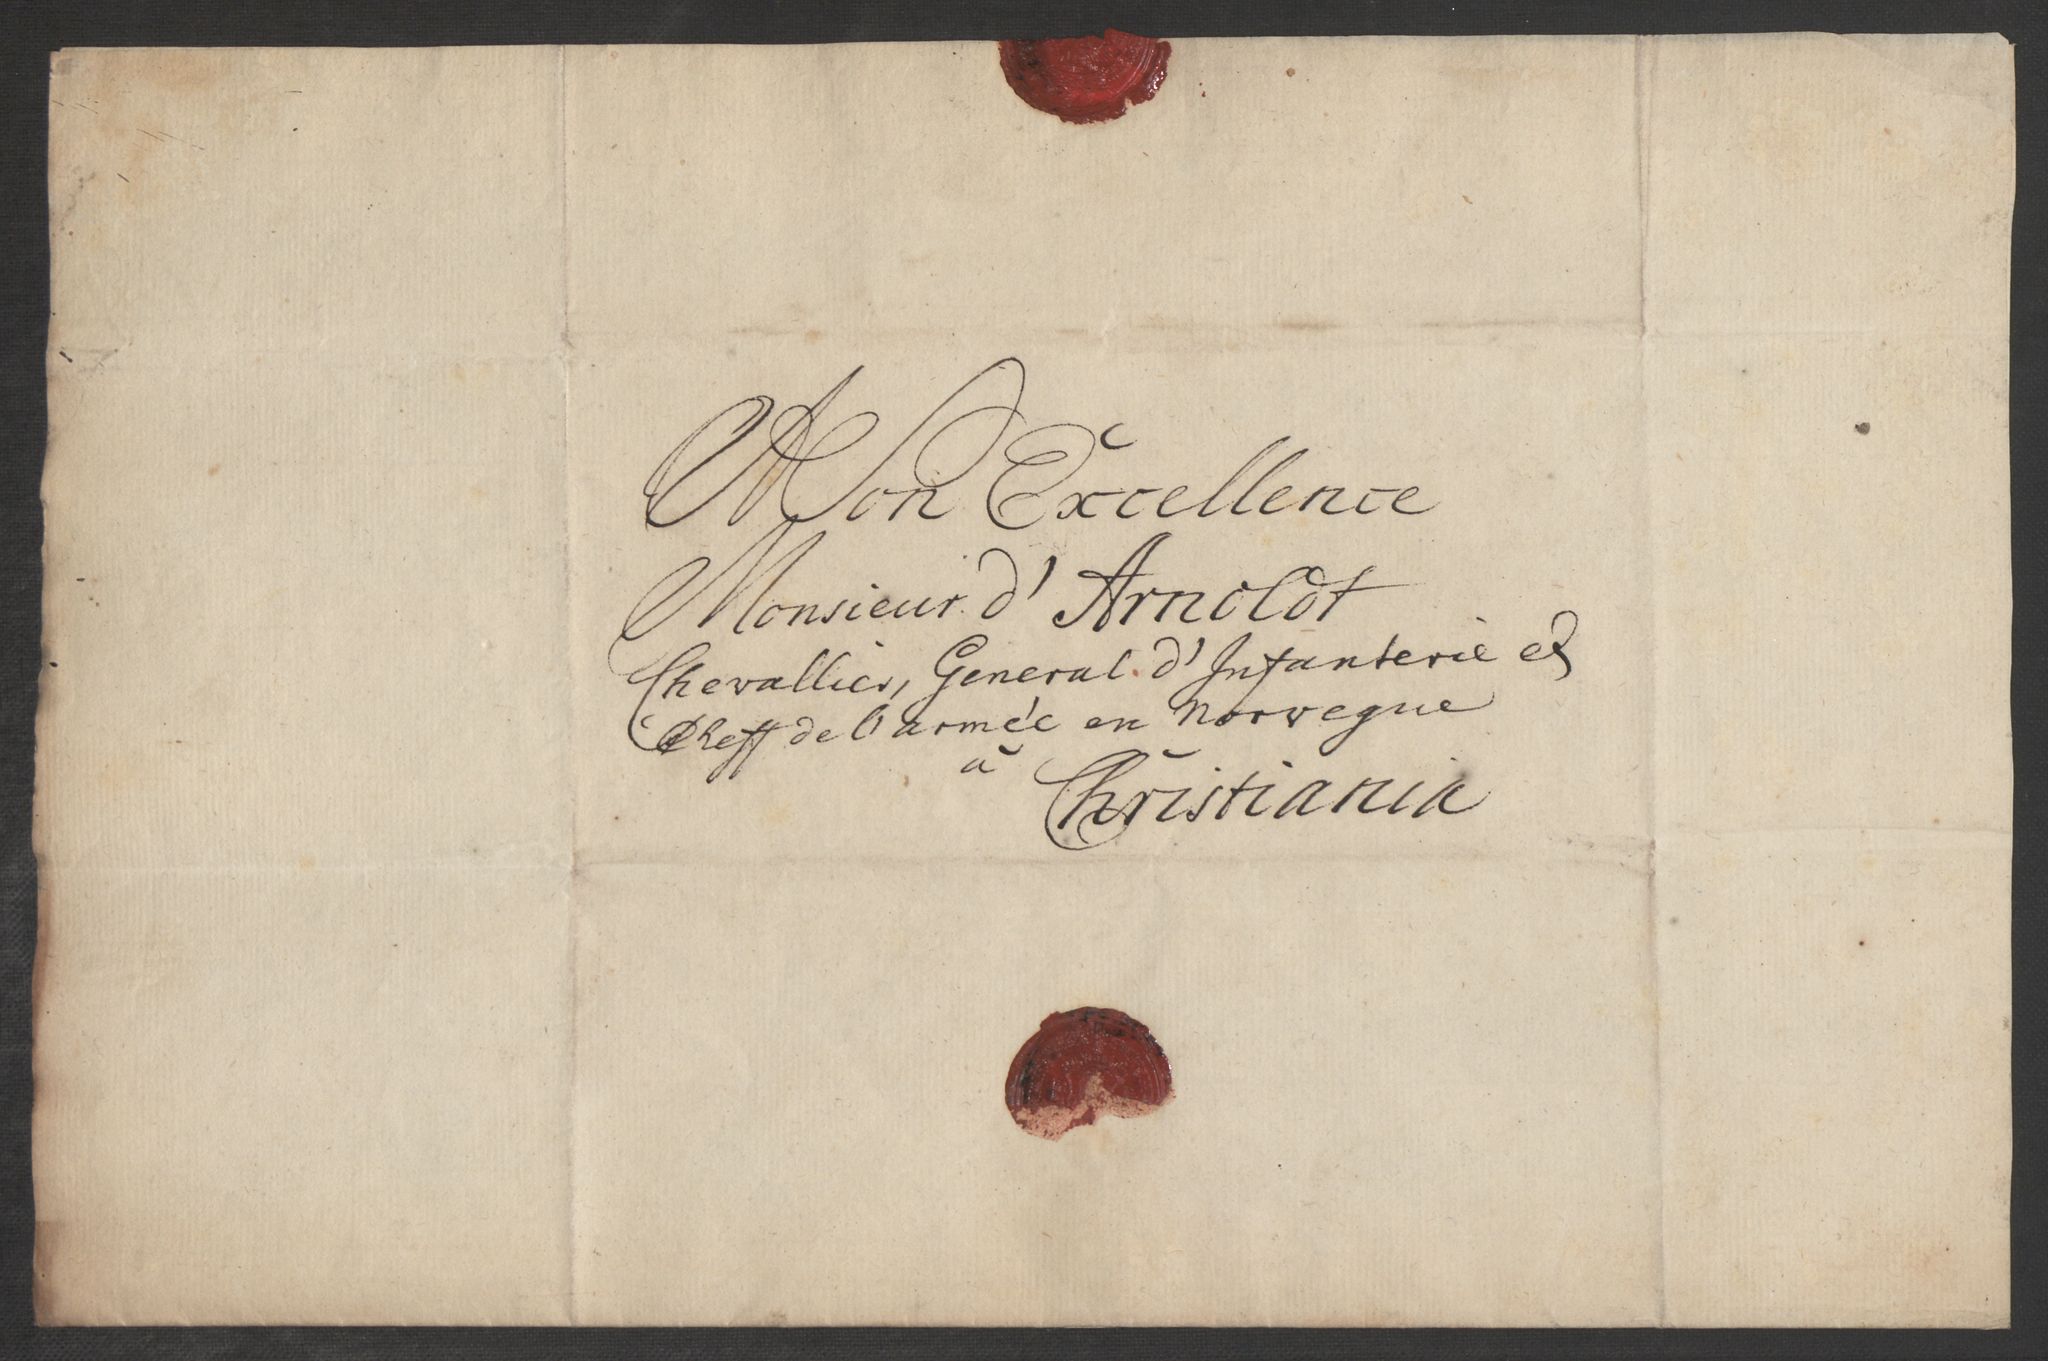 Mon Excellence
Monsieur d' Arnoldt
Chevallier, General d' Infanterie et
Cheff de l'armée en Norwegue
à
Christiania